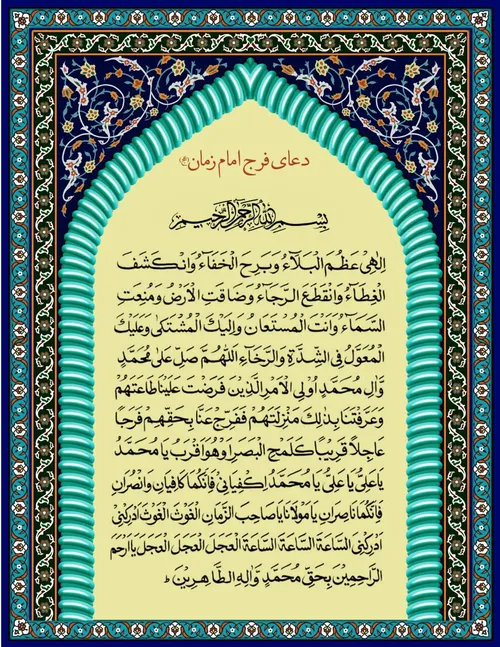 دعای فرج امام زمان (عج)
بِسْمِ اللهِ الرَّحْمنِ الرَّحيمِ
اِلهِى عَظُمَ الْبَلَآءُ وَبَرِحَ الْخَفآءُ وَانْكَشَفَ
الْغِطآءُ وَانْقَطَعَ الرَّجآءُ وَضاقَتِ الْاَرْضُ وَمُنِعَتِ
السَّمآءُ وَاَنْتَ الْمُسْتَعانُ وَاِلَيْكَ الْمُشْتَكى وَعَلَيْكَ
الْمُعَوَّلُ فِى الشِّدَّةِ وَالرَّخآءِ اَللّهُمَّ صَلِّ عَلى مُحَمَّدٍ
وَآلِ مُحَمَّدٍ اُولِى الْاَمْرِ الَّذينَ فَرَضْتَ عَلَيْنا طاعَتَهُمْ
وَعَرَّفْتَنا بِذلِكَ مَنْزِلَتَهُمْ فَفَرِّجْ عَنّا بِحَقِّهِمْ فَرَجًا
عاجِلًا قَريبًا كَلَمْحِ الْبَصَرِ اَوْ هُوَ اَقْرَبُ يا مُحَمَّدُ
يا عَلِىُّ يا عَلِىُّ يا مُحَمَّدُ اِكْفِيانى فَاِنَّكُما كافِيانِ وَانْصُرانِ
فَاِنَّكُما ناصِرانِ يا مَوْلانا يا صاحِبَ الزَّمانِ الْغَوْثَ الْغَوْثَ اَدْرِكْنى
اَدْرِكْنى السّاعَةَ السّاعَةَ السّاعَةَ الْعَجَلَ الْعَجَلَ الْعَجَلَ يا اَرْحَمَ
الرّاحِمينَ بِحَقِّ مُحَمَّدٍ وَآلِهِ الطّاهِرينَ